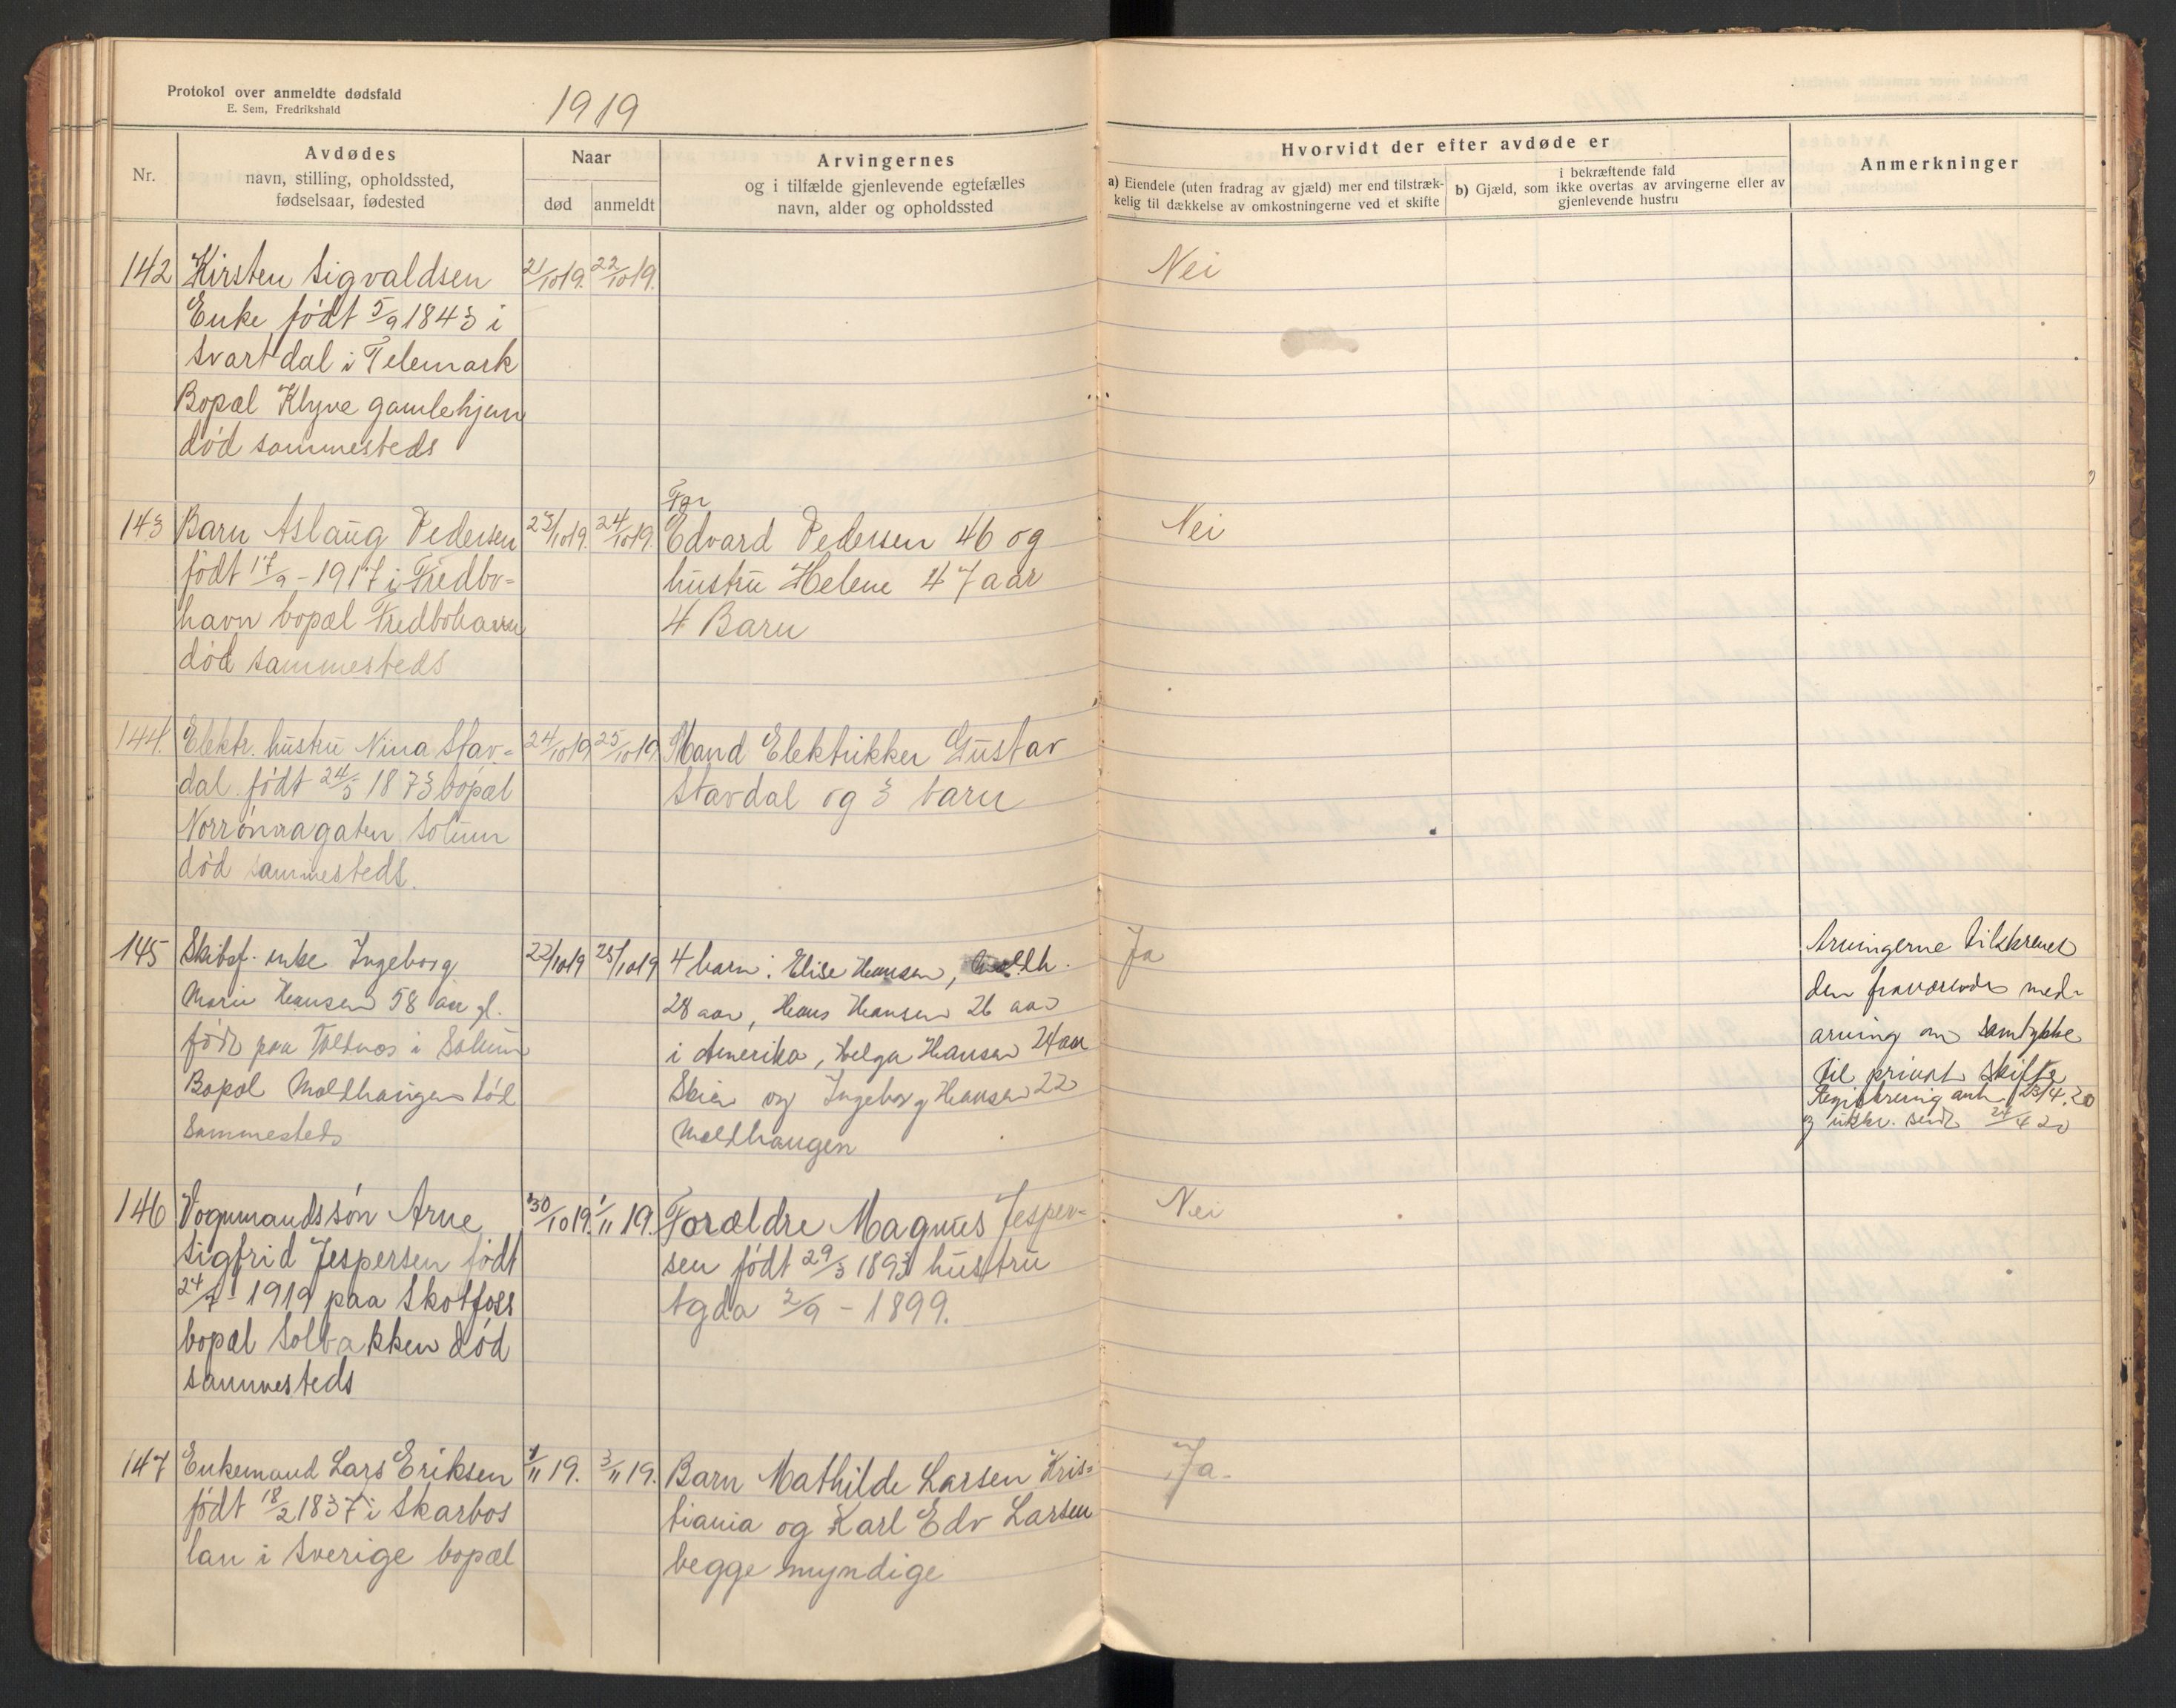 Protokol over anmeldte dødsfald
E. Sem, Fredrikshald
1919
Nr.
Avdødes
navn, stilling, opholdssted,
fødselsaar, fødested
Naar
død
anmeldt
Arvingernes
og i tilfælde gjenlevende egtefælles
navn, alder og opholdssted
Hvorvidt der efter avdøde er
a) Eiendele (uten fradrag av gjæld) mer end tilstræk-
kelig til dækkelse av omkostningerne ved et skifte
i bekræftende fald
b) Gjæld, som ikke overtas av arvingerne eller av
gjenlevende hustru
Anmerkninger
142
Kirsten Sigvaldsen
Enke født 5/9 1843 i
Svartdal i Telemark
Bopæl Klyve gamlehjem
død sammesteds
21/10 19.
22/10 19.
Nei
143
Barn Aslaug Pedersen
født 17/9 - 1917 i Fredbo-
havn bopæl Fredbohavn
død sammesteds
23/10 19.
24/10 19.
Far
Edvard Pedersen 46 og
hustru Helene 47 aar
4 Barn
Nei
144.
Elektr. hustru Nina Stav-
dal født 24/5 1873 bopæl
Norrønagaten Solum
død sammesteds.
24/10 19
25/10 19.
Mand Elektrikker Gustav
Stavdal og 3 barn
145
Skibsf. enke Ingeborg
Marie Hansen 58 aar gl.
født paa Toltnæs i Solum
Bopæl Molthaugen død
Sammesteds
22/10 19
25/10 19
4 barn: Elise Hansen, Molth.
28 aar, Hans Hansen 26 aar
i Amerika, Helga Hansen 24 aar
Skien og Ingeborg Hansen 22
Molthaugen
Ja
Arvingerne tilskrevet
den fraværende med-
arving om samtykke
til privat skifte
Registrering anh. 23/4.20
og utskr. sendt 24/4 20
146
Vognmandssøn Arne
Sigfrid Jespersen født
24/7 - 1919 paa Skotfoss
bopæl Solbakken død
sammesteds
30/10 19.
1/11 19.
Forældre Magnus Jesper-
sen født 29/3 1893 hustru
Agda 2/9 - 1899.
Nei
147
Enkemand Lars Eriksen
født 18/2 1837 i Skarbos
lan i Sverige bopæl
1/11 19.
3/11 19.
Barn Mathilde Larsen Kris-
tiania og Karl Edv Larsen
begge myndige
Ja.